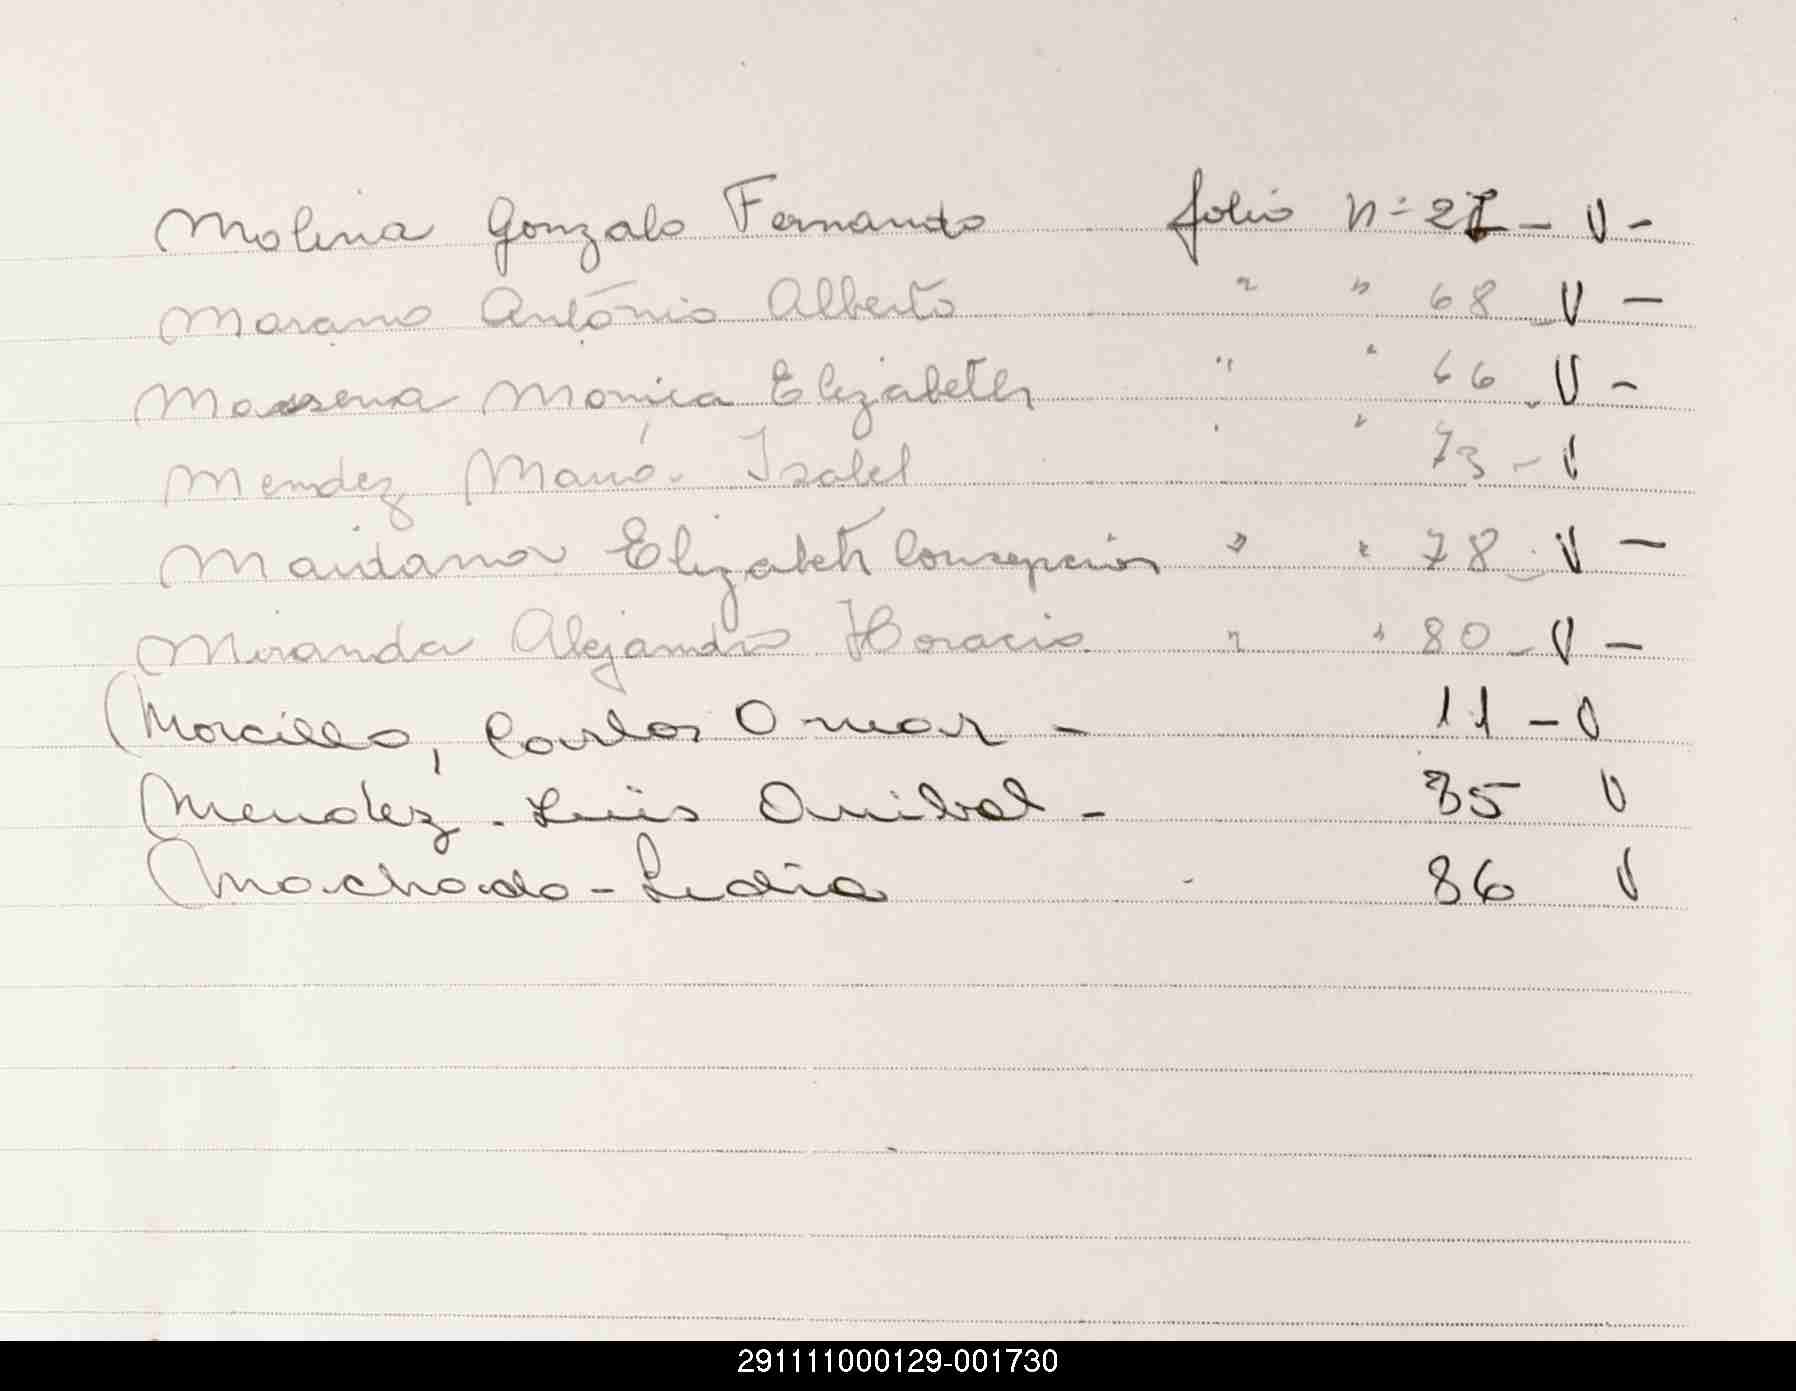 Molina Gonzalo Fernando folio n= 27 - V -
Morano António Alberto " " 68 - V -
Massena Monica Elizabeth " " 66 - V -
Mendez María Isabel " " 73 - V
Maidana Elizabeth Consepcion " " 78 - V -
Miranda Alejandro Horacio " " 80 - V -
Morcillo, Carlos Omar - 11 - V
Mendez - Luis Anibal - 85 V
Machado - Lidia 86 V
291111000129-001730